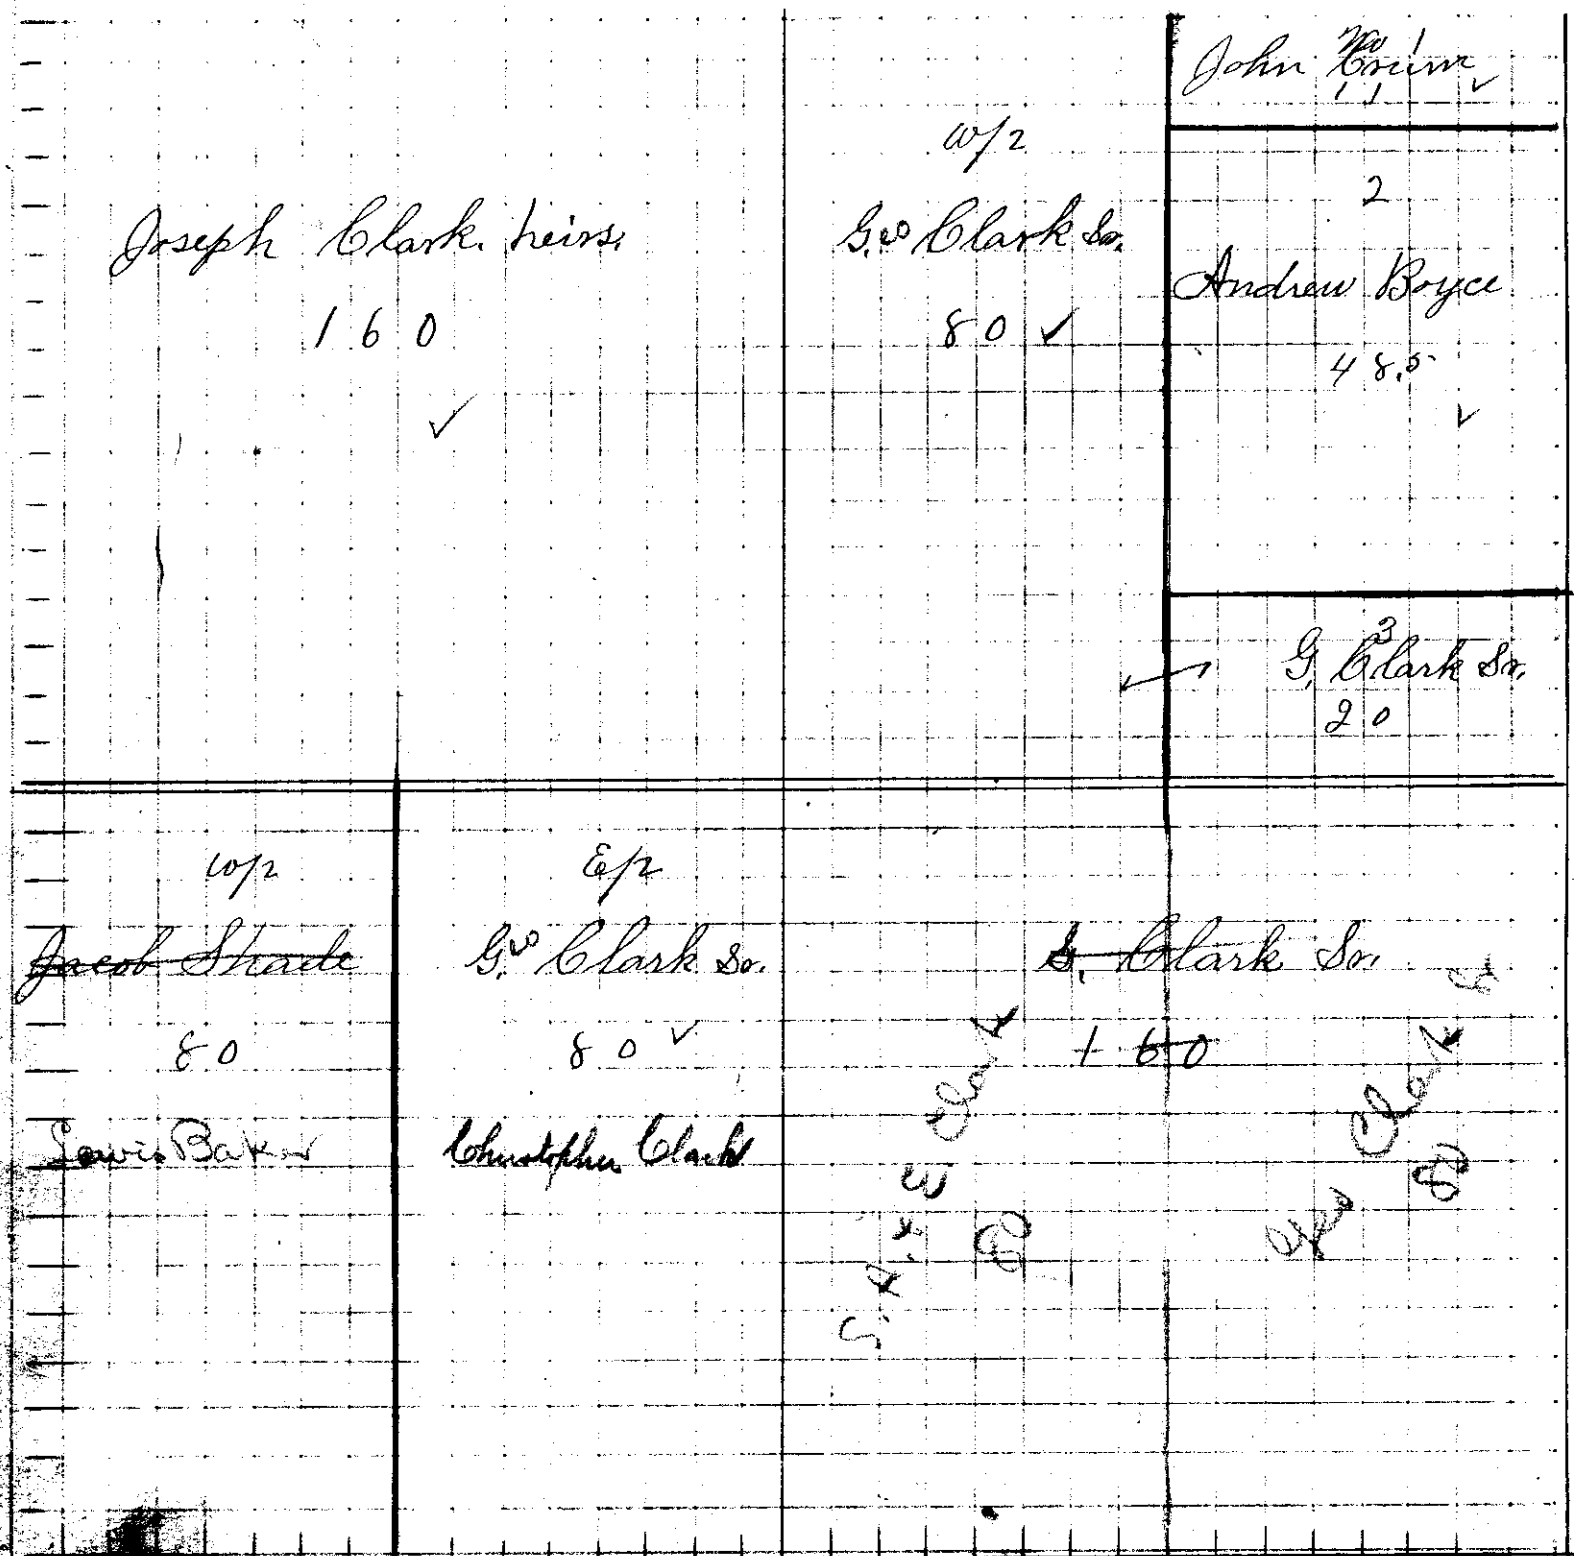 Joseph Clark. heirs.
160
W/2
Geo Clark Sr.
80
No 1
John Crum
11
2
Andrew Boyce
48.5
3
G. Clark Sr.
20
W/2
Jacob Shade
80
Lewis Baker
E/2
Geo Clark Sr.
80
Christopher Clark
G. Clark Sr.
160
Clark
80
Geo Clark Sr
80